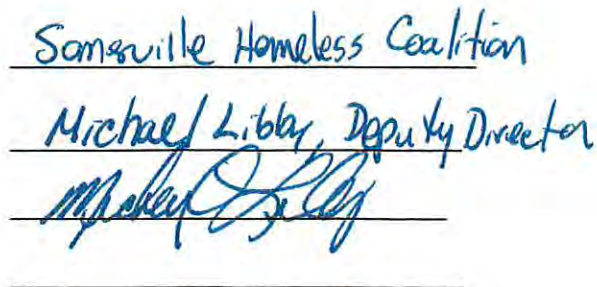 Somerville Homeless Coalition
Michael Libby, Deputy Director